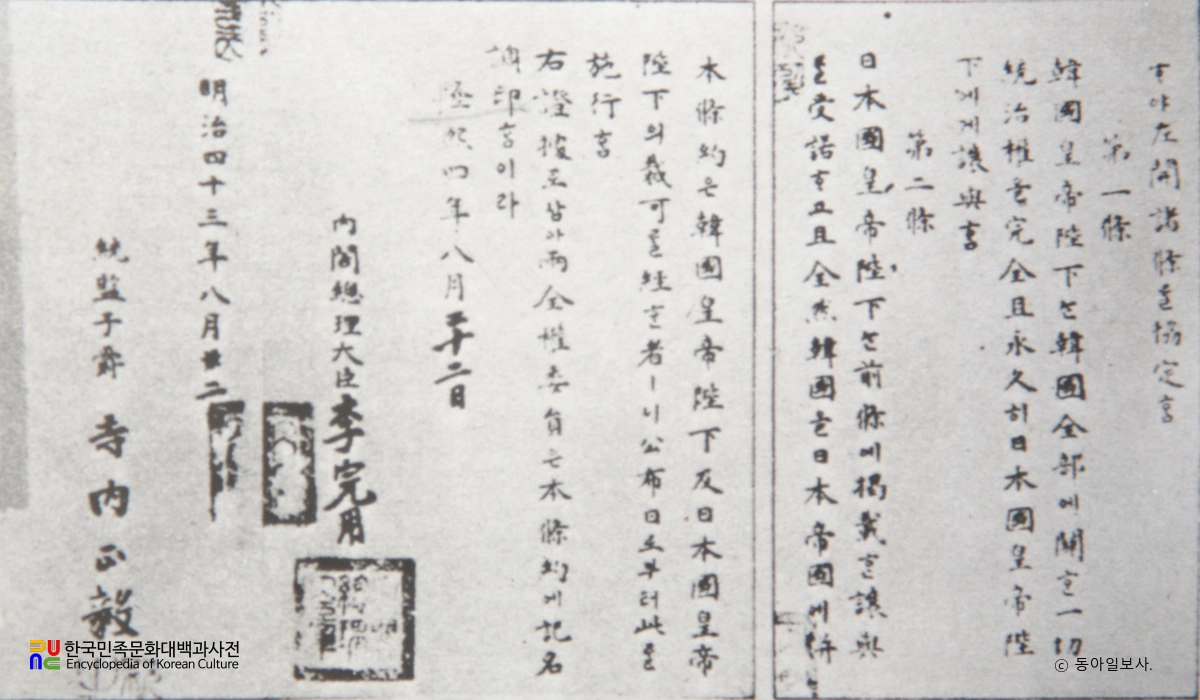 ᄒᆞ야左開諸條를協定홈
第一條
韓國皇帝陛下ᄂᆞᆫ韓國全部에關ᄒᆞᆫ一切
統治權을完全且永久히日本國皇帝陛
下에게讓與홈
第二條
日本國皇帝陛下ᄂᆞᆫ前條에揭載ᄒᆞᆫ讓與
를受諾ᄒᆞ고且全然韓國을日本帝國에倂
本條約은韓國皇帝陛下及日本國皇帝
陛下의裁可를經ᄒᆞᆫ者ㅣ니公布日로부터此를
施行홈
右證據로삼아兩全權委員은本條約에記名
調印홈이라
隆熙四年八月二十二日
內閣總理大臣 李完用
明治四十三年八月廿二
統監子爵 寺內正毅
한국민족문화대백과사전
Encyclopedia of Korean Culture
© 동아일보사.